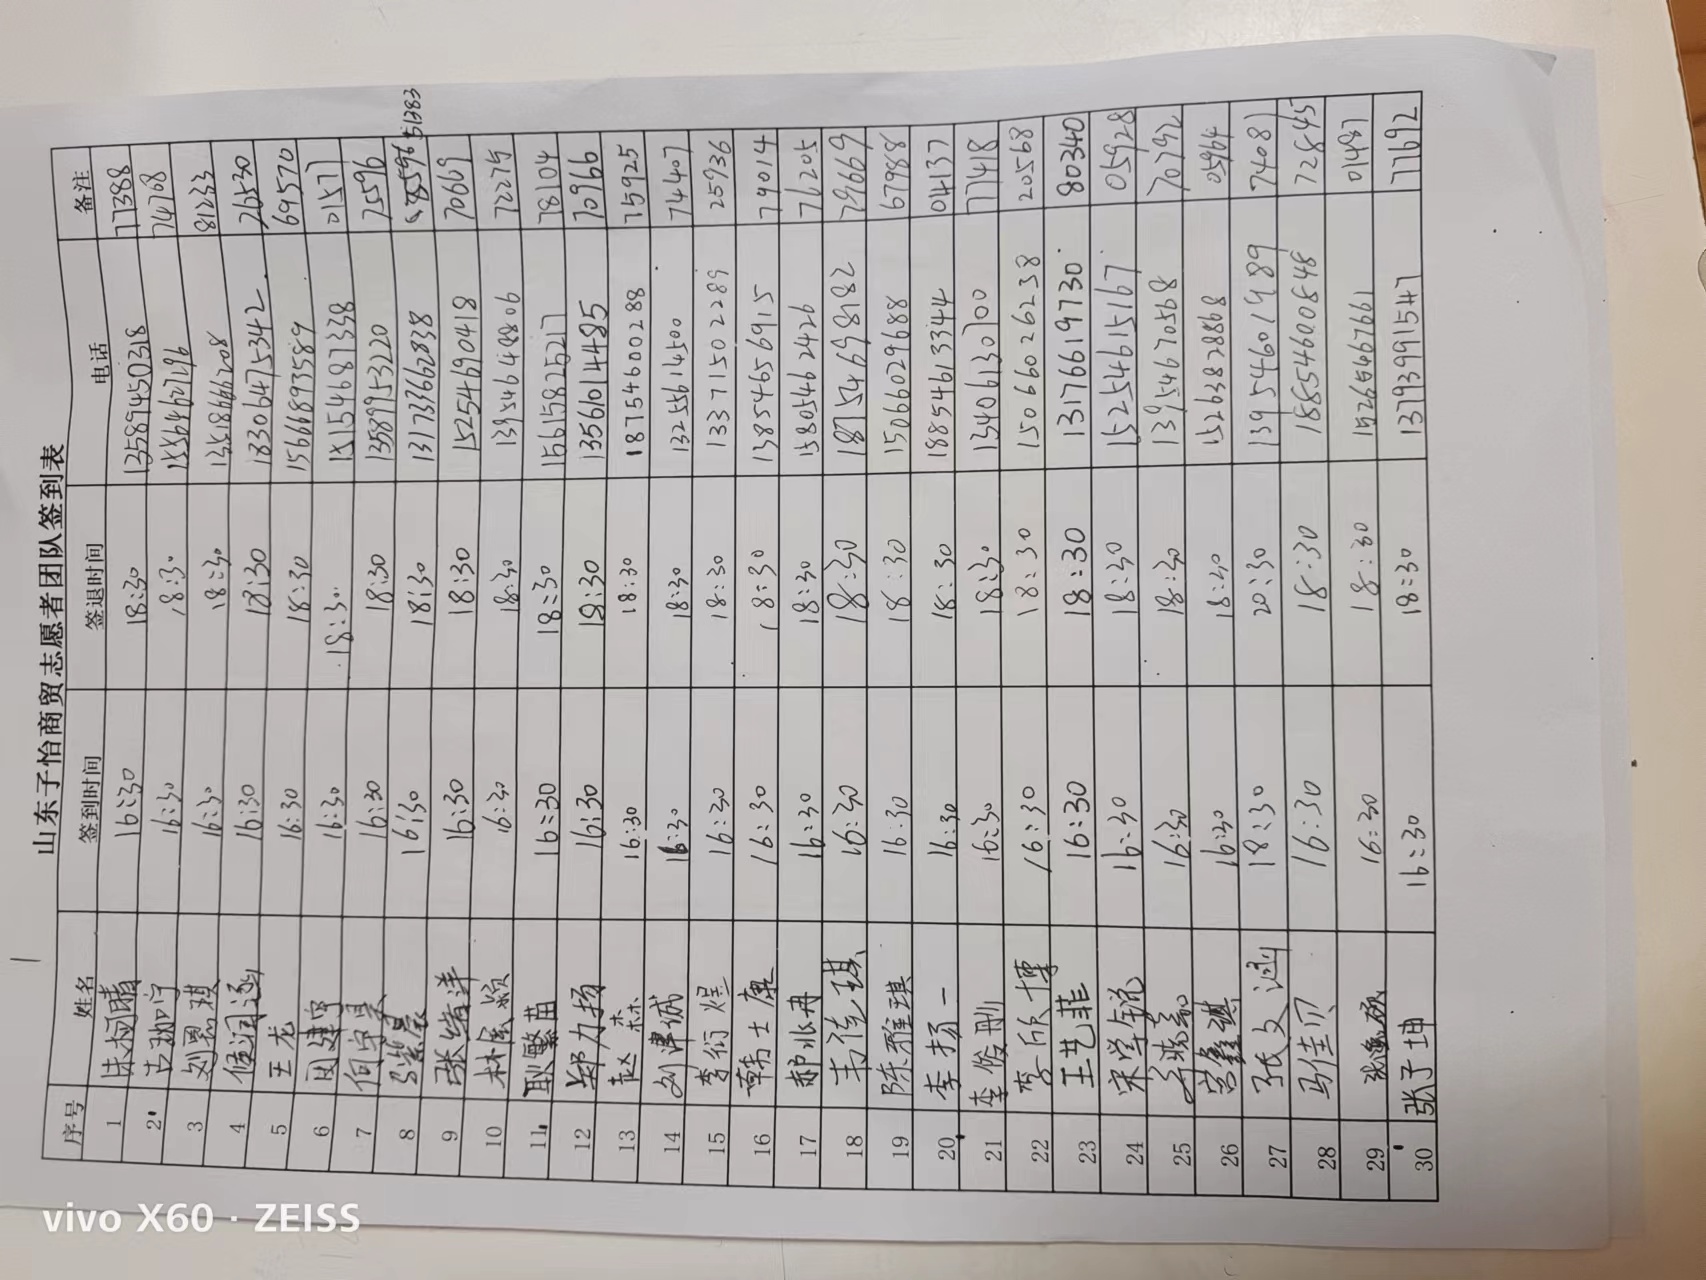 山东子怡商贸志愿者团队签到表
序号 姓名 签到时间 签退时间 电话 备注
1 16:30 18:30 13589450318 77388
2 16:30 18:30 15564607196 74768
3 刘恩琪 16:30 18:30 13518666208 81233
4 16:30 18:30 18306475342 26530
5 王龙 16:30 18:30 15668935589 69570
6 16:30 18:30 15154681338 01577
7 何宇昊 16:30 18:30 13589953220 75596
8 16:30 18:30 13173662838 51383
9 张绪洋 16:30 18:30 15254690418 70669
10 林尽颖 16:30 18:30 13954648806 72275
11 耿繁苗 16:30 18:30 15615825217 78104
12 郑力扬 16:30 18:30 13561014485 70966
13 赵森 16:30 18:30 18754600288 75925
14 刘津诚 16:30 18:30 13255614500 74407
15 李衍煜 16:30 18:30 13371502289 25936
16 韩士康 16:30 18:30 13854656915 79014
17 郝兆冉 16:30 18:30 15805462426 76205
18 韦佳琪 16:30 18:30 18754698182 79669
19 陈雅琪 16:30 18:30 15066029688 67988
20 李扬一 16:30 18:30 18854613344 04137
21 李俊刚 16:30 18:30 13406130700 77418
22 李欣博 16:30 18:30 15066026238 20568
23 王艺菲 16:30 18:30 13176619730 80340
24 宋学锐 16:30 18:30 15254615167 05928
25 16:30 18:30 13954670568 70792
26 宫鑫祺 16:30 18:30 15263828868 05964
27 张文涵 18:30 20:30 13954601489 74081
28 马佳贝 16:30 18:30 18854600848 72845
29 张逸硕 16:30 18:30 15266467661 01487
30 张子坤 16:30 18:30 13793991547 77692
vivo X60 · ZEISS